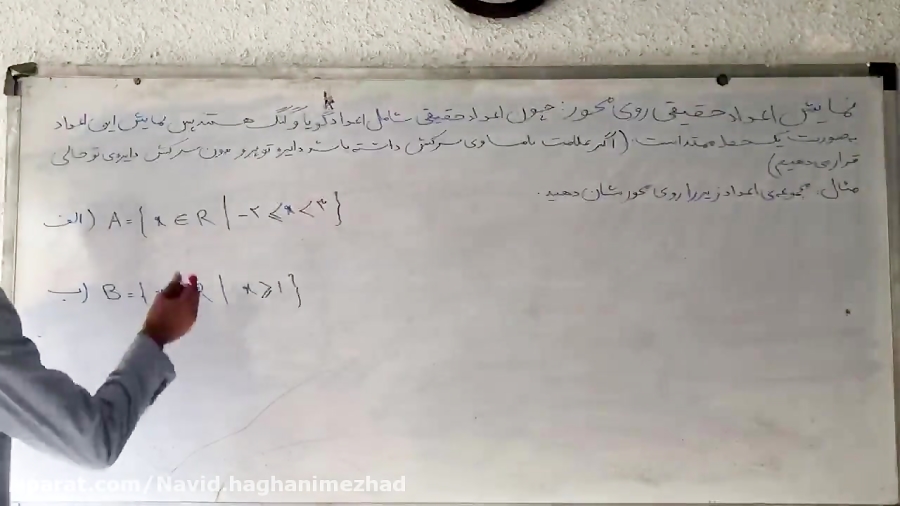 نمایش اعداد حقیقی روی محور: چون اعداد حقیقی شامل اعداد گویا و گنگ هستند پس نمایش این اعداد
بصورت یک خط ممتد است. (اگر علامت نامساوی سرکش داشته باشد دایره توپر و بدون سرکش دایره‌ی توخالی
قرار می‌دهیم)
مثال: مجموعه‌ی اعداد زیر را روی محور نشان دهید.
الف) A = { x ∈ R | -۲ ⩽ x < ۳ }
ب) B = { R | x ⩾ ۱ }
aparat.com/Navid.haghanimezhad